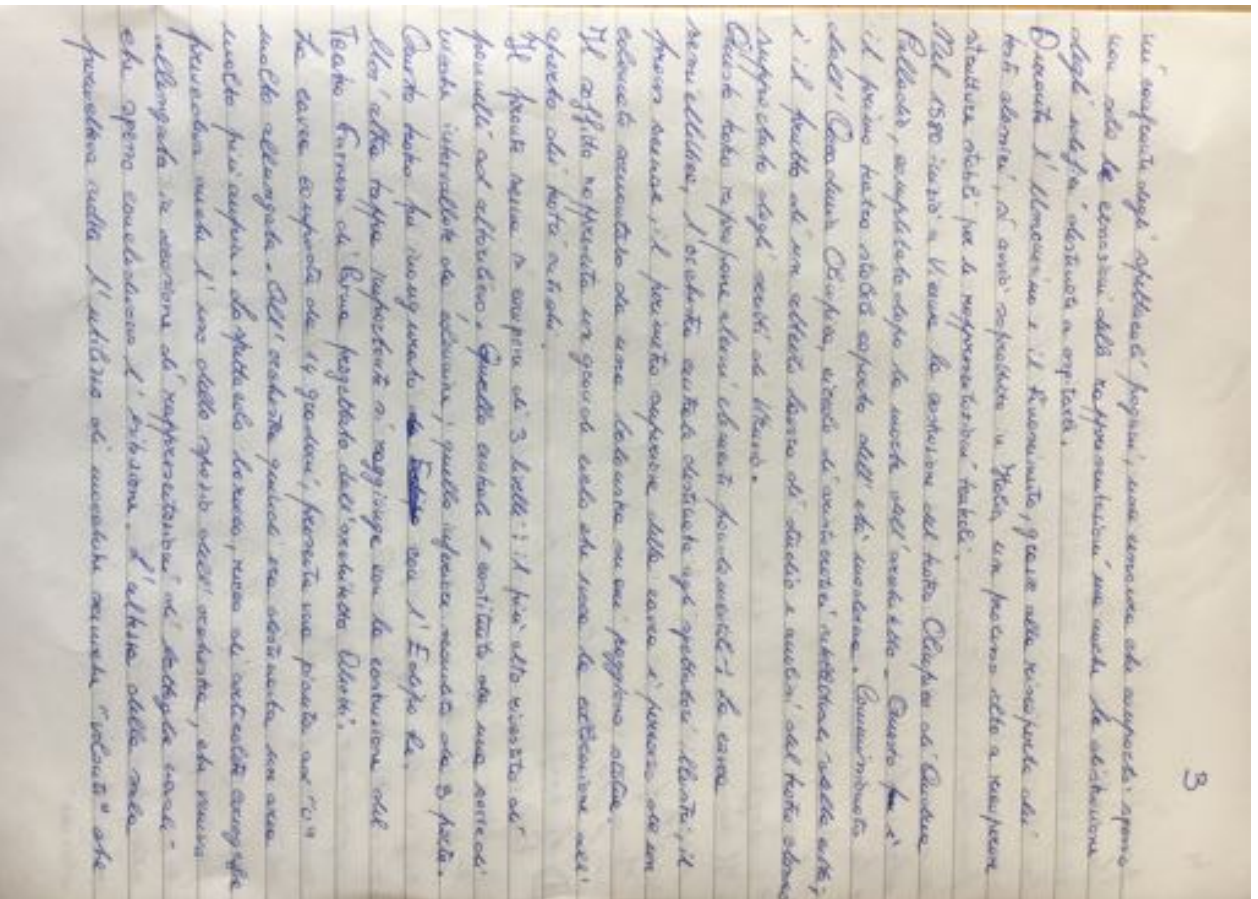 3
nei confronti degli spettacoli pagani, una censura che comportò spesso
non solo la cessazione delle rappresentazioni ma anche la distruzione
degli edifici destinati a ospitarle.
Durante l'Umanesimo e il Rinascimento, grazie alla riscoperta dei
testi classici, si avviò soprattutto in Italia, un processo atto a recuperare
strutture stabili per le rappresentazioni teatrali.
Nel 1580 iniziò a Vicenza la costruzione del teatro Olimpico di Andrea
Palladio, completato dopo la morte dell'architetto. Questo è
il primo teatro stabile coperto dell'età moderna. Commissionato
dall'Accademia Olimpica, circolo di aristocratici
è il frutto di un attento lavoro di studio e analisi del teatro classico
supportato dagli scritti di Vitruvio.
Questo teatro ripropone alcuni elementi fondamentali: la cavea
semiellittica, l'orchestra centrale destinata agli spettatori illustri, il
frons scenae, il perimetro superiore della cavea è percorso da un
colonnato sormontato da una balaustra su cui poggiano statue.
Il soffitto rappresenta un grande cielo che evoca la collocazione all'
aperto dei teatri antichi.
Il fronte scena si compone di 3 livelli: il più alto rivestito di
pannelli ad altorilievo. Quello centrale è costituito da una serie di
nicchie intervallate da colonnine, quello inferiore
Questo teatro fu inaugurato con l'Edipo Re.
Un'altra tappa importante si raggiunge con la costruzione del
Teatro Farnese di Parma progettato dall'architetto Aleotti.
La cavea composta da 14 gradoni, presenta una pianta ad "U"
molto allungata. All'orchestra quindi era destinata un'area
molto più ampia. Lo spettacolo barocco, ricco di articolate coreografie
prevedeva anche l'uso dello spazio dell'orchestra, che veniva
allungato in occasione di rappresentazioni di battaglie navali
che spesso concludevano l'esibizione. L'altezza della sala
permetteva inoltre l'utilizzo di macchine sceniche "volanti" che